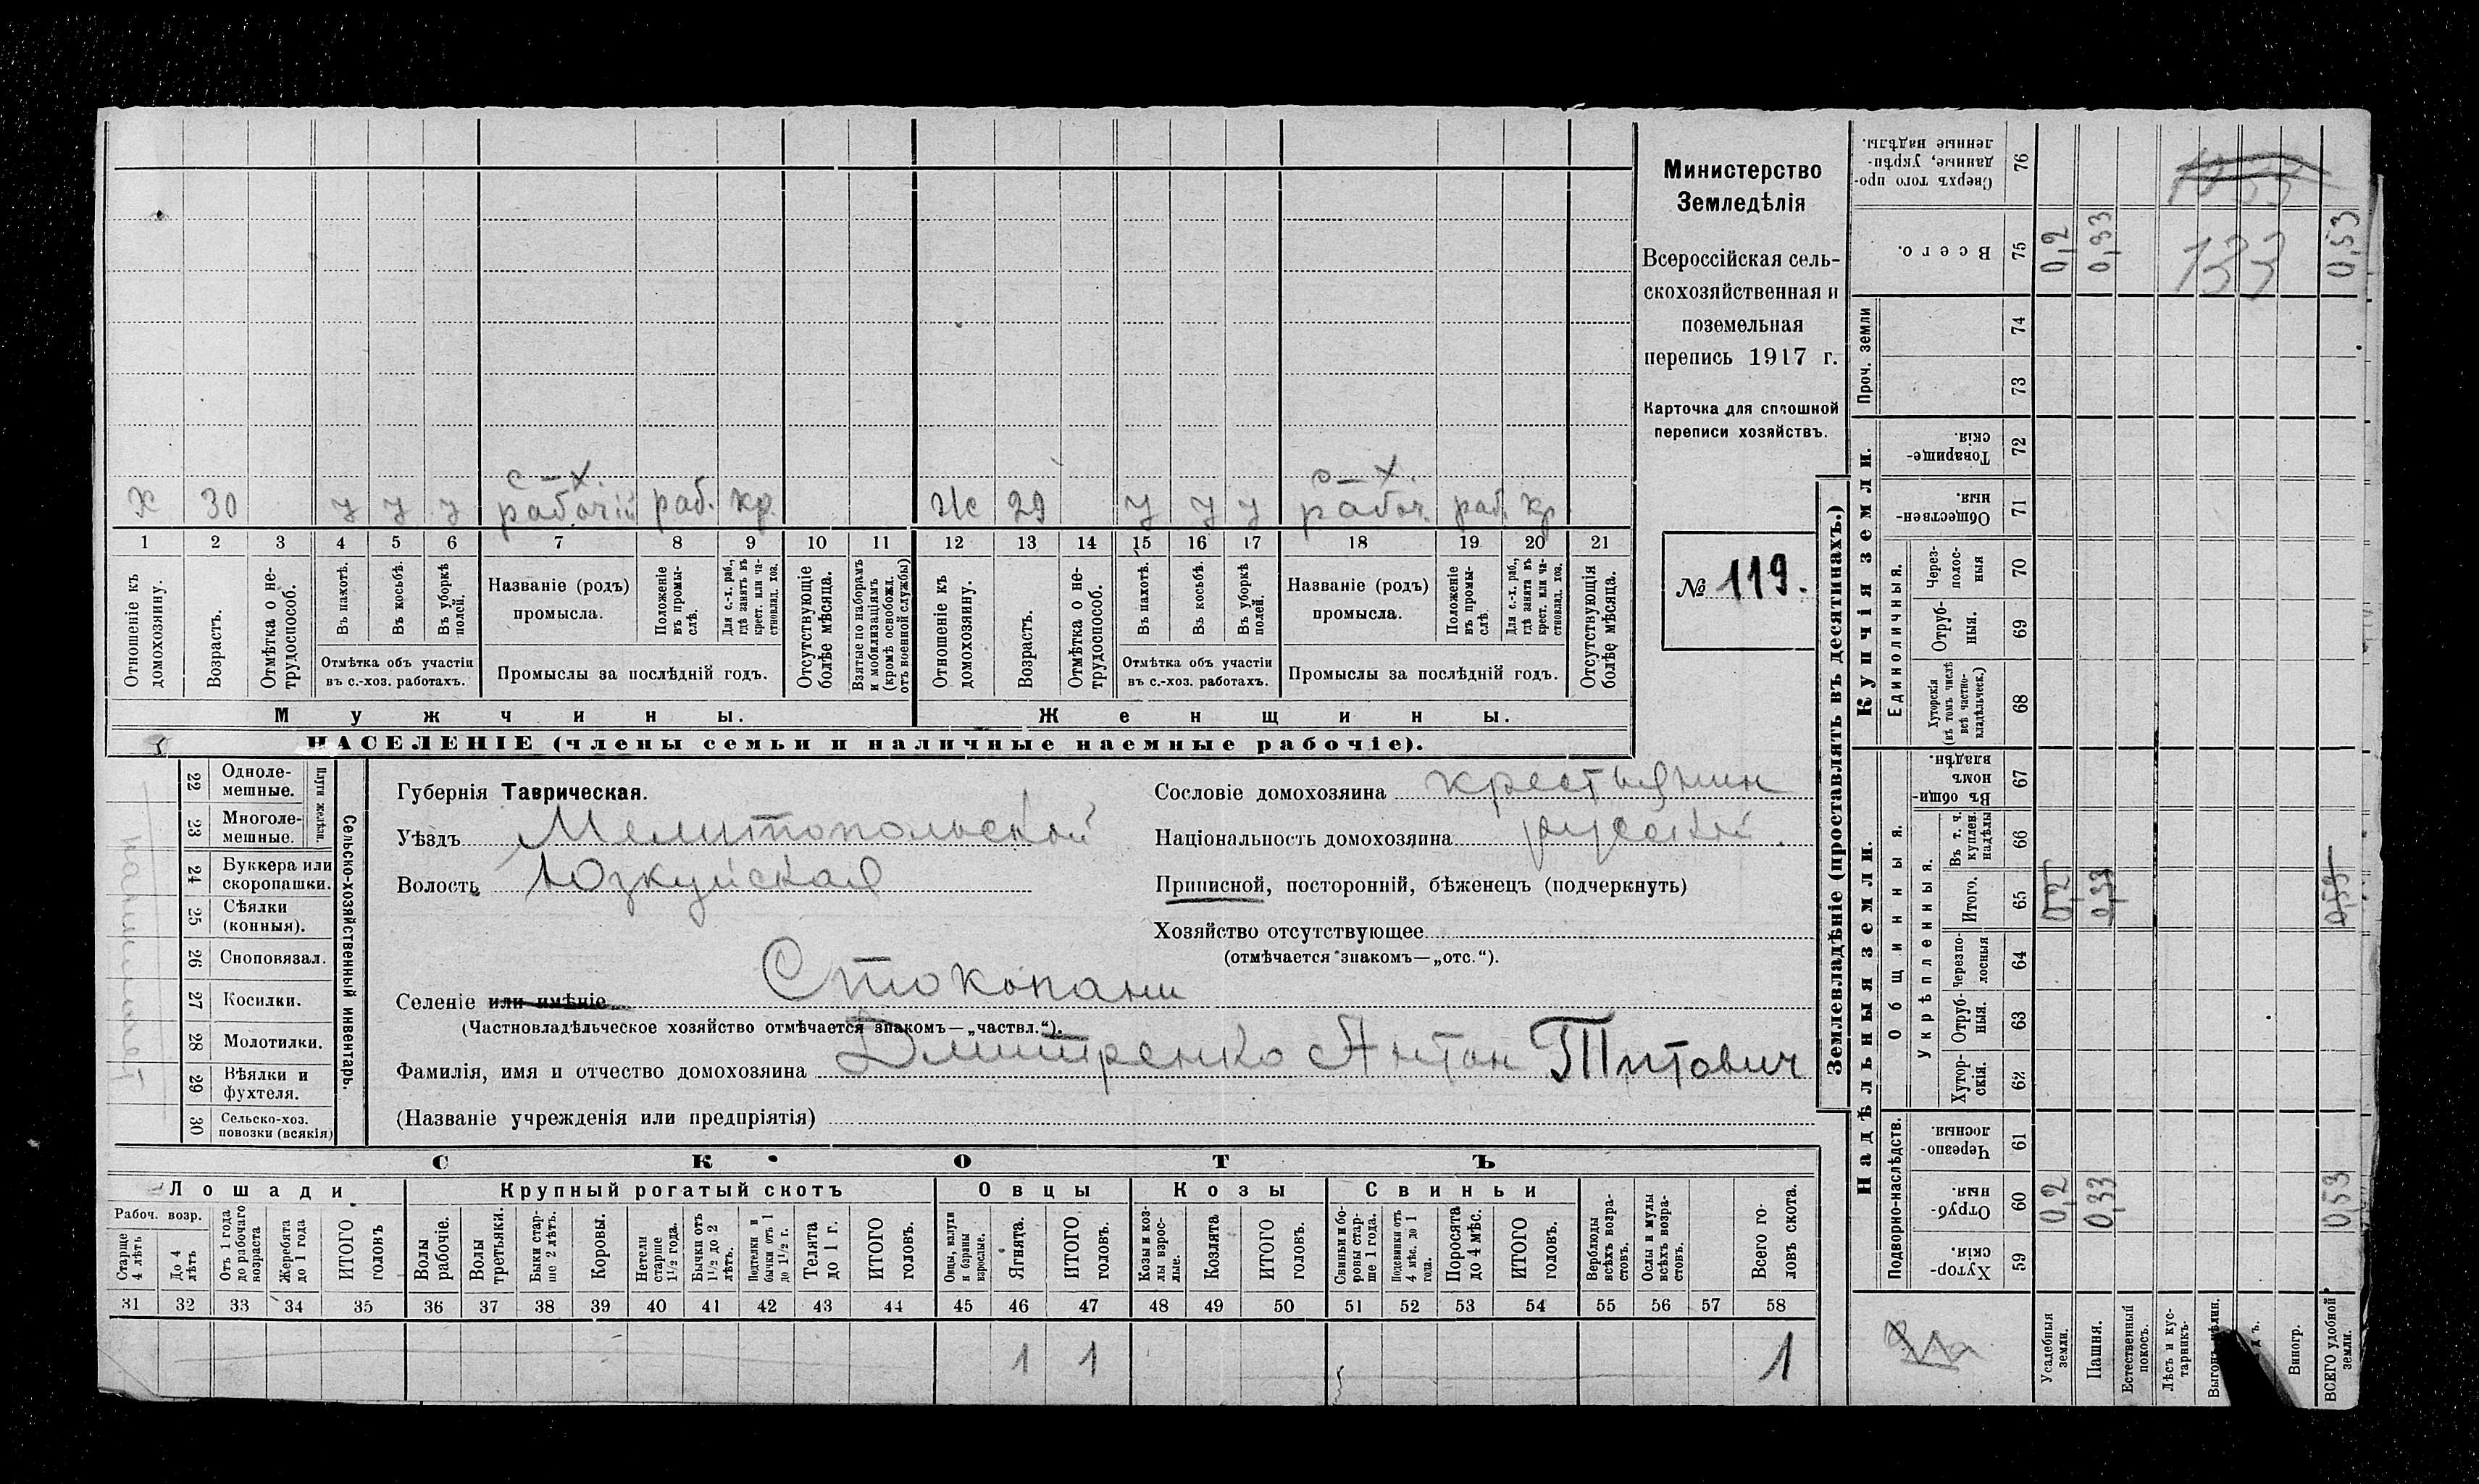 Министерство
Земледѣлія
Всероссійская сель-
скохозяйственная и
поземельная
перепись 1917 г.
Карточка для сплошной
переписи хозяйствъ.
№ 119.
с-х. с-х.
Х 30 у у у рабочій раб. кр. Ж 29 у у у рабоч. раб. кр
1 2 3 4 5 6 7 8 9 10 11 12 13 14 15 16 17 18 19 20 21
Отношеніе къ домохозяину.
Возрастъ.
Отмѣтка о не-трудоспособ.
Въ пахотѣ.
Въ косьбѣ.
Въ уборкѣ полей.
Отмѣтка объ участіи
въ с.-хоз. работахъ.
Названіе (родъ)
промысла.
Положеніе въ промы-слѣ.
Для с.-х. раб., гдѣ занятъ въ крест. или ча-стновлад. хоз.
Промыслы за послѣдній годъ.
Отсутствующіе болѣе мѣсяца.
Взятые по наборамъ и мобилизаціямъ (кромѣ освобожд. отъ военной службы)
Отношеніе къ домохозяину.
Возрастъ.
Отмѣтка о не-трудоспособ.
Въ пахотѣ.
Въ косьбѣ.
Въ уборкѣ полей.
Отмѣтка объ участіи
въ с.-хоз. работахъ.
Названіе (родъ)
промысла.
Положеніе въ промы-слѣ.
Для с.-х. раб., гдѣ занятъ въ крест. или ча-стновлад. хоз.
Промыслы за послѣдній годъ.
Отсутствующія болѣе мѣсяца.
Мужчины. Женщины.
НАСЕЛЕНІЕ (члены семьи и наличные наемные рабочіе).
22 Одноле-мешные.
23 Многоле-мешные.
Плуги желѣзн.
24 Буккера или скоропашки.
25 Сѣялки (конныя).
26 Сноповязал.
27 Косилки.
28 Молотилки.
29 Вѣялки и фухтеля.
30 Сельско-хоз. повозки (всякія)
Сельско-хозяйственный инвентарь.
Губернія Таврическая.
Уѣздъ Мелитопольской
Волость Юзкуйская
Сословіе домохозяина крестьянин
Національность домохозяина русский.
Приписной, посторонній, бѣженецъ (подчеркнуть)
Хозяйство отсутствующее
(отмѣчается знакомъ—„отс.“).
Селеніе или имѣніе Стокопани
(Частновладѣльческое хозяйство отмѣчается знакомъ—„частвл.“).
Фамилія, имя и отчество домохозяина Дмитренко Антон Титович
(Названіе учрежденія или предпріятія)
СКОТЪ
Лошади Крупный рогатый скотъ Овцы Козы Свиньи
Рабоч. возр.
Старше 4 лѣтъ
До 4 лѣтъ
Отъ 1 года до рабочаго возраста
Жеребята до 1 года
ИТОГО головъ
Волы рабочіе.
Волы третьяки.
Быки стар-ше 2 лѣтъ.
Коровы.
Нетели старше 1 1/2 года.
Бычки отъ 1 1/2 до 2 лѣтъ.
Подтелки и бычки отъ 1 до 1 1/2 г.
Телята до 1 г.
ИТОГО головъ.
Овцы, валухи и бараны взрослые.
Ягнята.
ИТОГО головъ.
Козы и коз-лы взрос-лые.
Козлята
ИТОГО головъ.
Свиньи и бо-ровы стар-ше 1 года.
Подсвинки отъ 4 мѣс. до 1 года.
Поросята до 4 мѣс.
ИТОГО головъ.
Верблюды всѣхъ возра-стовъ.
Ослы и мулы всѣхъ возра-стовъ.
Всего го-ловъ скота.
31 32 33 34 35 36 37 38 39 40 41 42 43 44 45 46 47 48 49 50 51 52 53 54 55 56 57 58
1 1 1
Землевладѣніе (проставлять въ десятинахъ.)
Надѣльныя земли. Купчія земли. Проч. земли
Подворно-наслѣдств.
Общинныя.
Укрѣпленныя.
Единоличныя.
Хутор-скія. 59
Отруб-ныя. 60 0,2 0,33 0,53
Черезпо-лосныя. 61
Хутор-скія. 62
Отруб-ныя. 63
Черезпо-лосныя 64
Итого. 65 0,2 0,33 0,53
Въ т. ч. куплен. надѣлы 66
Въ общи-номъ владѣн. 67
Хуторскія (въ томъ числѣ всѣ частно-владѣльческ.) 68
Отруб-ныя. 69
Через-полос-ныя 70
Обществен-ныя. 71
Товарище-скія. 72
73
74
Всего. 75 0,2 0,33 133 0,53
Сверхъ того про-данные, укрѣп-ленные надѣлы. 76
Усадебныя земли.
Пашня.
Естественный покосъ.
Лѣсъ и кус-тарникъ.
Виногр.
ВСЕГО удобной земли.